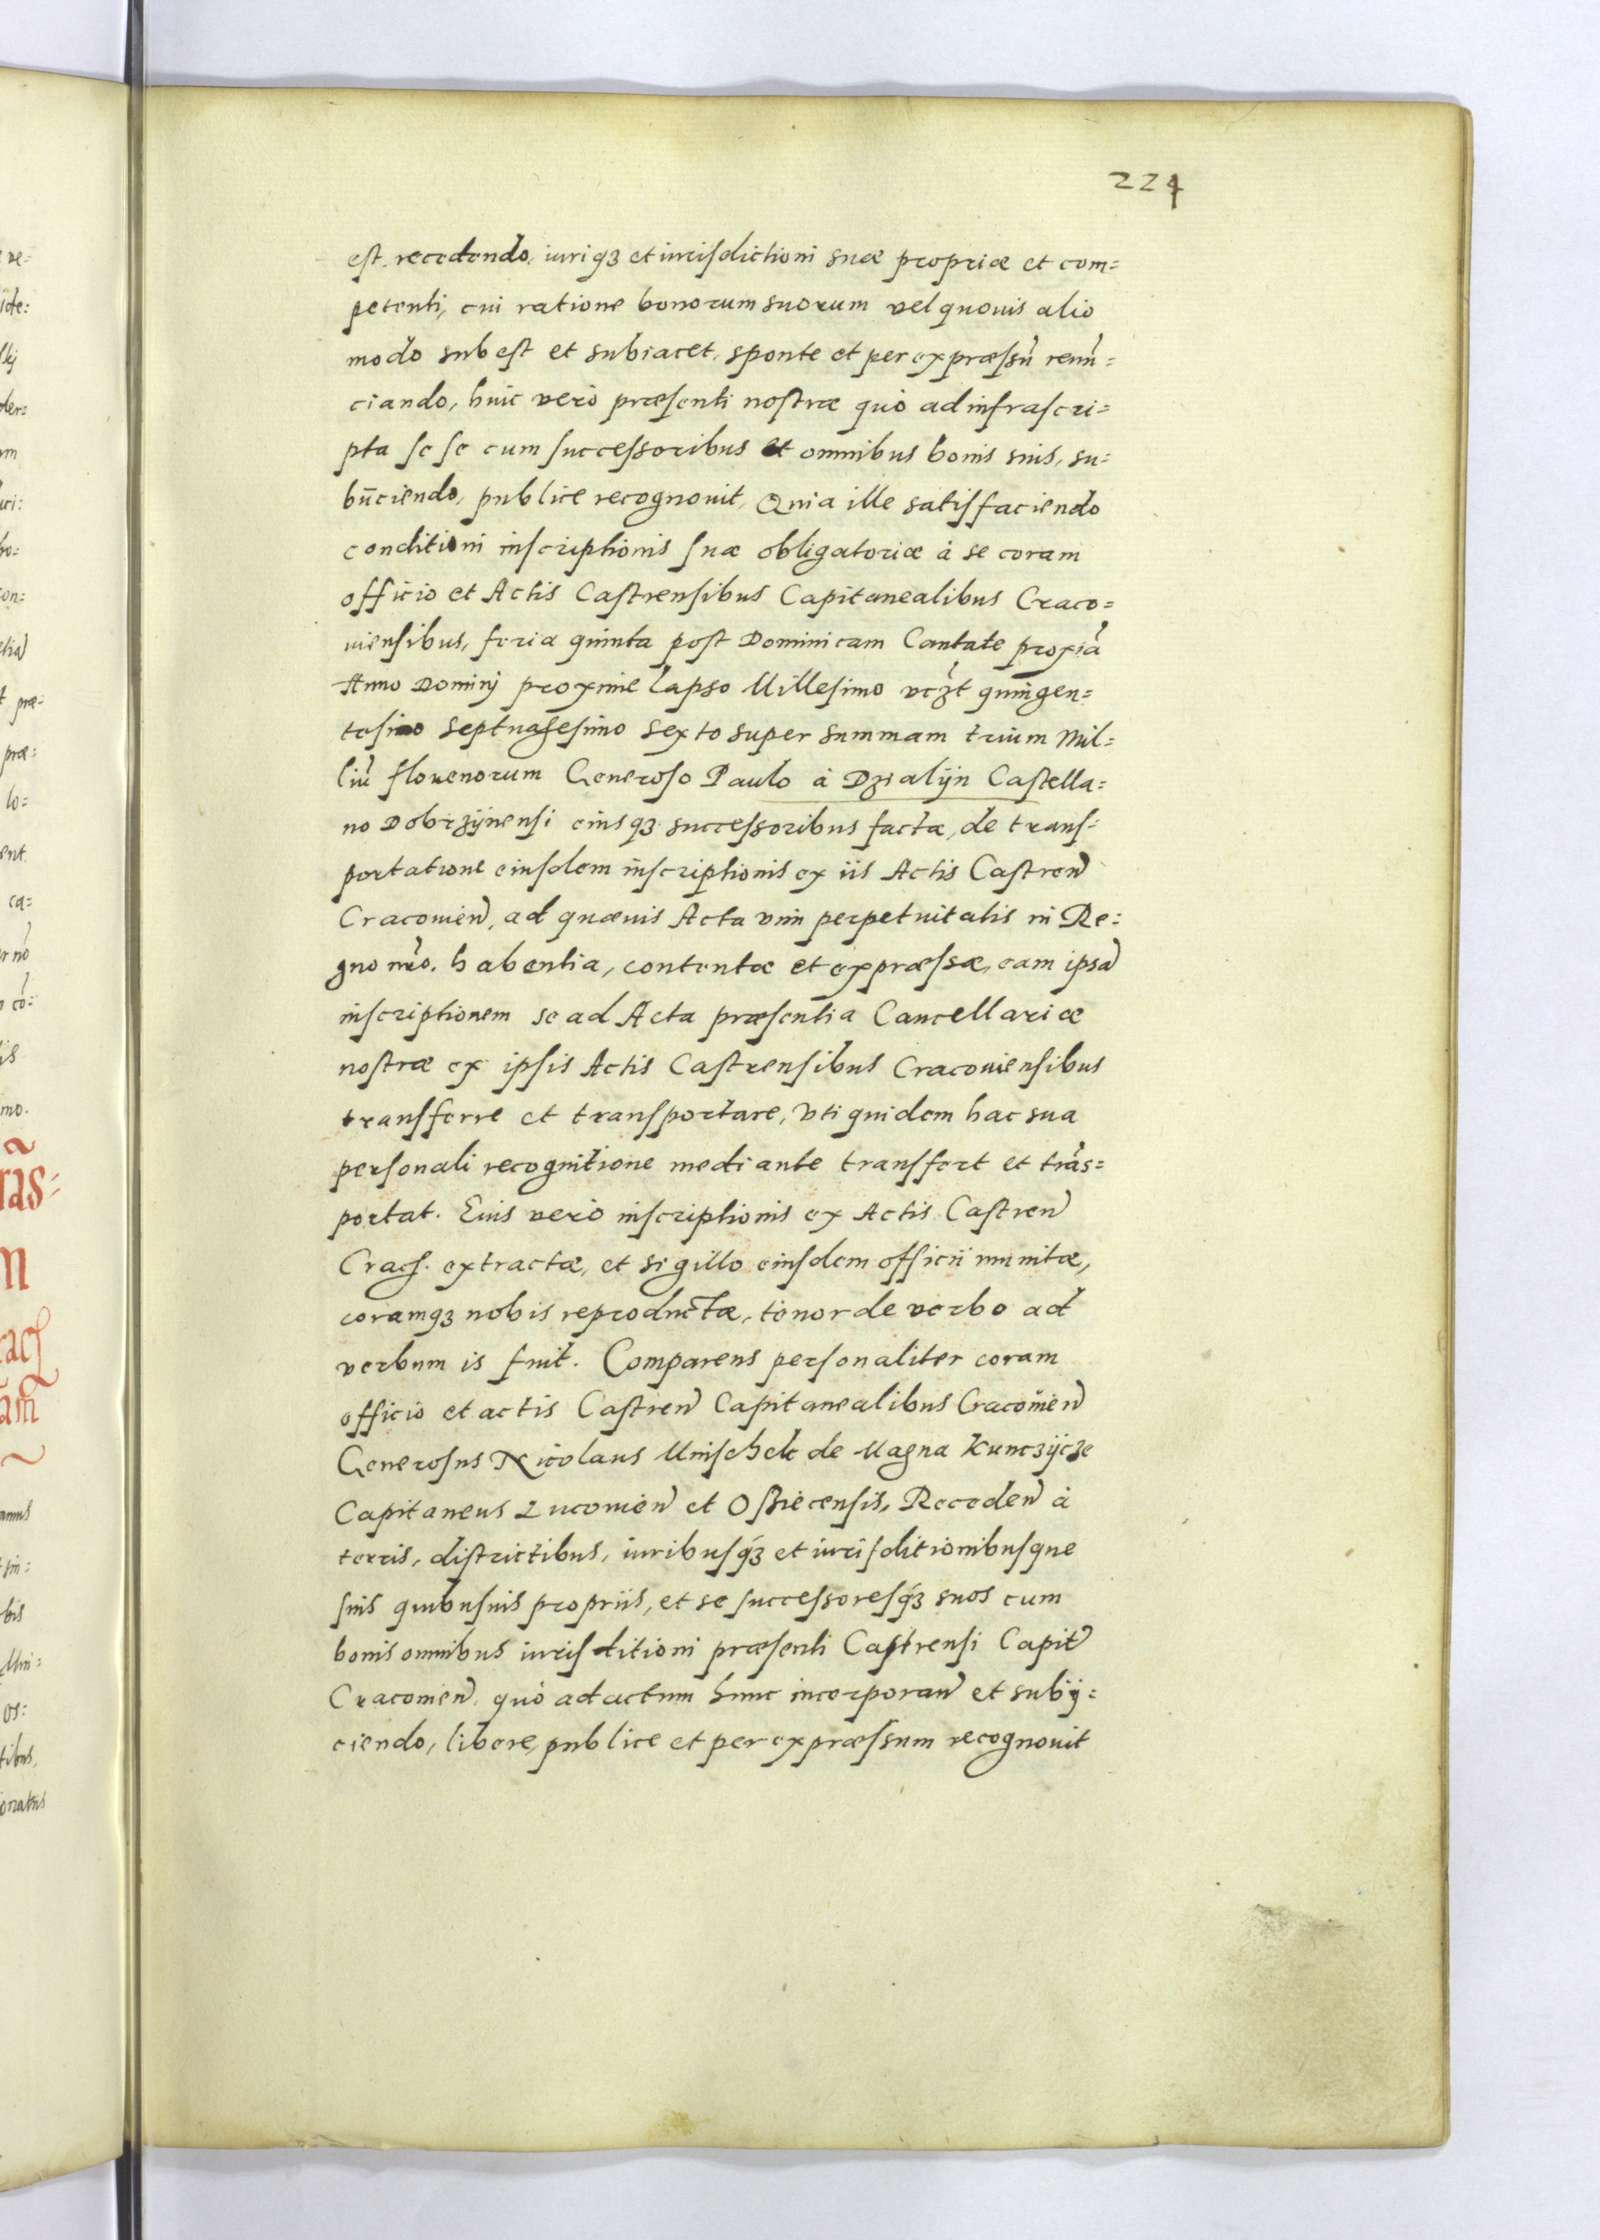 224
est, recedendo, iuriqꝫ et iurisdictioni suæ propriæ et com=
petenti, cui ratione bonorum suorum vel quouis alio
modo subest et subiacet, sponte et per expræssũ renũ=
ciando, huic verò præsenti nostræ quò ad infrascri=
pta se se cum successoribus et omnibus bonis suis, su=
bijciendo, publice recognouit, Quia ille satisfaciendo
conditioni inscriptionis suæ obligatoriæ à se coram
officio et Actis Castrensibus Capitanealibus Craco=
uiensibus, feria quinta post Dominicam Cantate proxiã
Anno Dominj proxime lapso Millesimo vcꝫt quingen=
tesimo septuagesimo sexto super summam trium Mil=
liũ florenorum Generoso Paulo à Dzialijn Castella=
no Dobrzijnensi eiusqꝫ successoribus facta, de trans=
portatione eiusdem inscriptionis ex iis Actis Castren
Cracouien, ad quæuis Acta vim perpetuitatis in Re=
gno nrõ. habentia, contentæ et expræssæ, eam ipsã
inscriptionem se ad Acta præsentia Cancellariæ
nostræ ex ipsis Actis Castrensibus Cracouiensibus
transferre et transportare, Vti quidem hac sua
personali recognitione mediante transfert et trãs=
portat. Eius verò inscriptionis ex Actis Castren
Cracs. extractæ, et sigillo eiusdem officii munitæ,
coramqꝫ nobis reproductæ, tenor de verbo ad
verbum is fuit. Comparens personaliter coram
officio et actis Castren Capitanealibus Cracouien
Generosus Nicolaus Mnischek de Magna Kunczijcze
Capitaneus Lucouien et Ossiecensis, Receden à
terris, districtibus, iuribusqꝫ et iurisditionibusque
suis quibusuis propriis, et se successoresqꝫ suos cum
bonis omnibus iurisditioni præsenti Castrensi Capit
Cracouien, quò ad actum hunc incorporan et subij=
ciendo, libere, publice et per expræssum recognouit